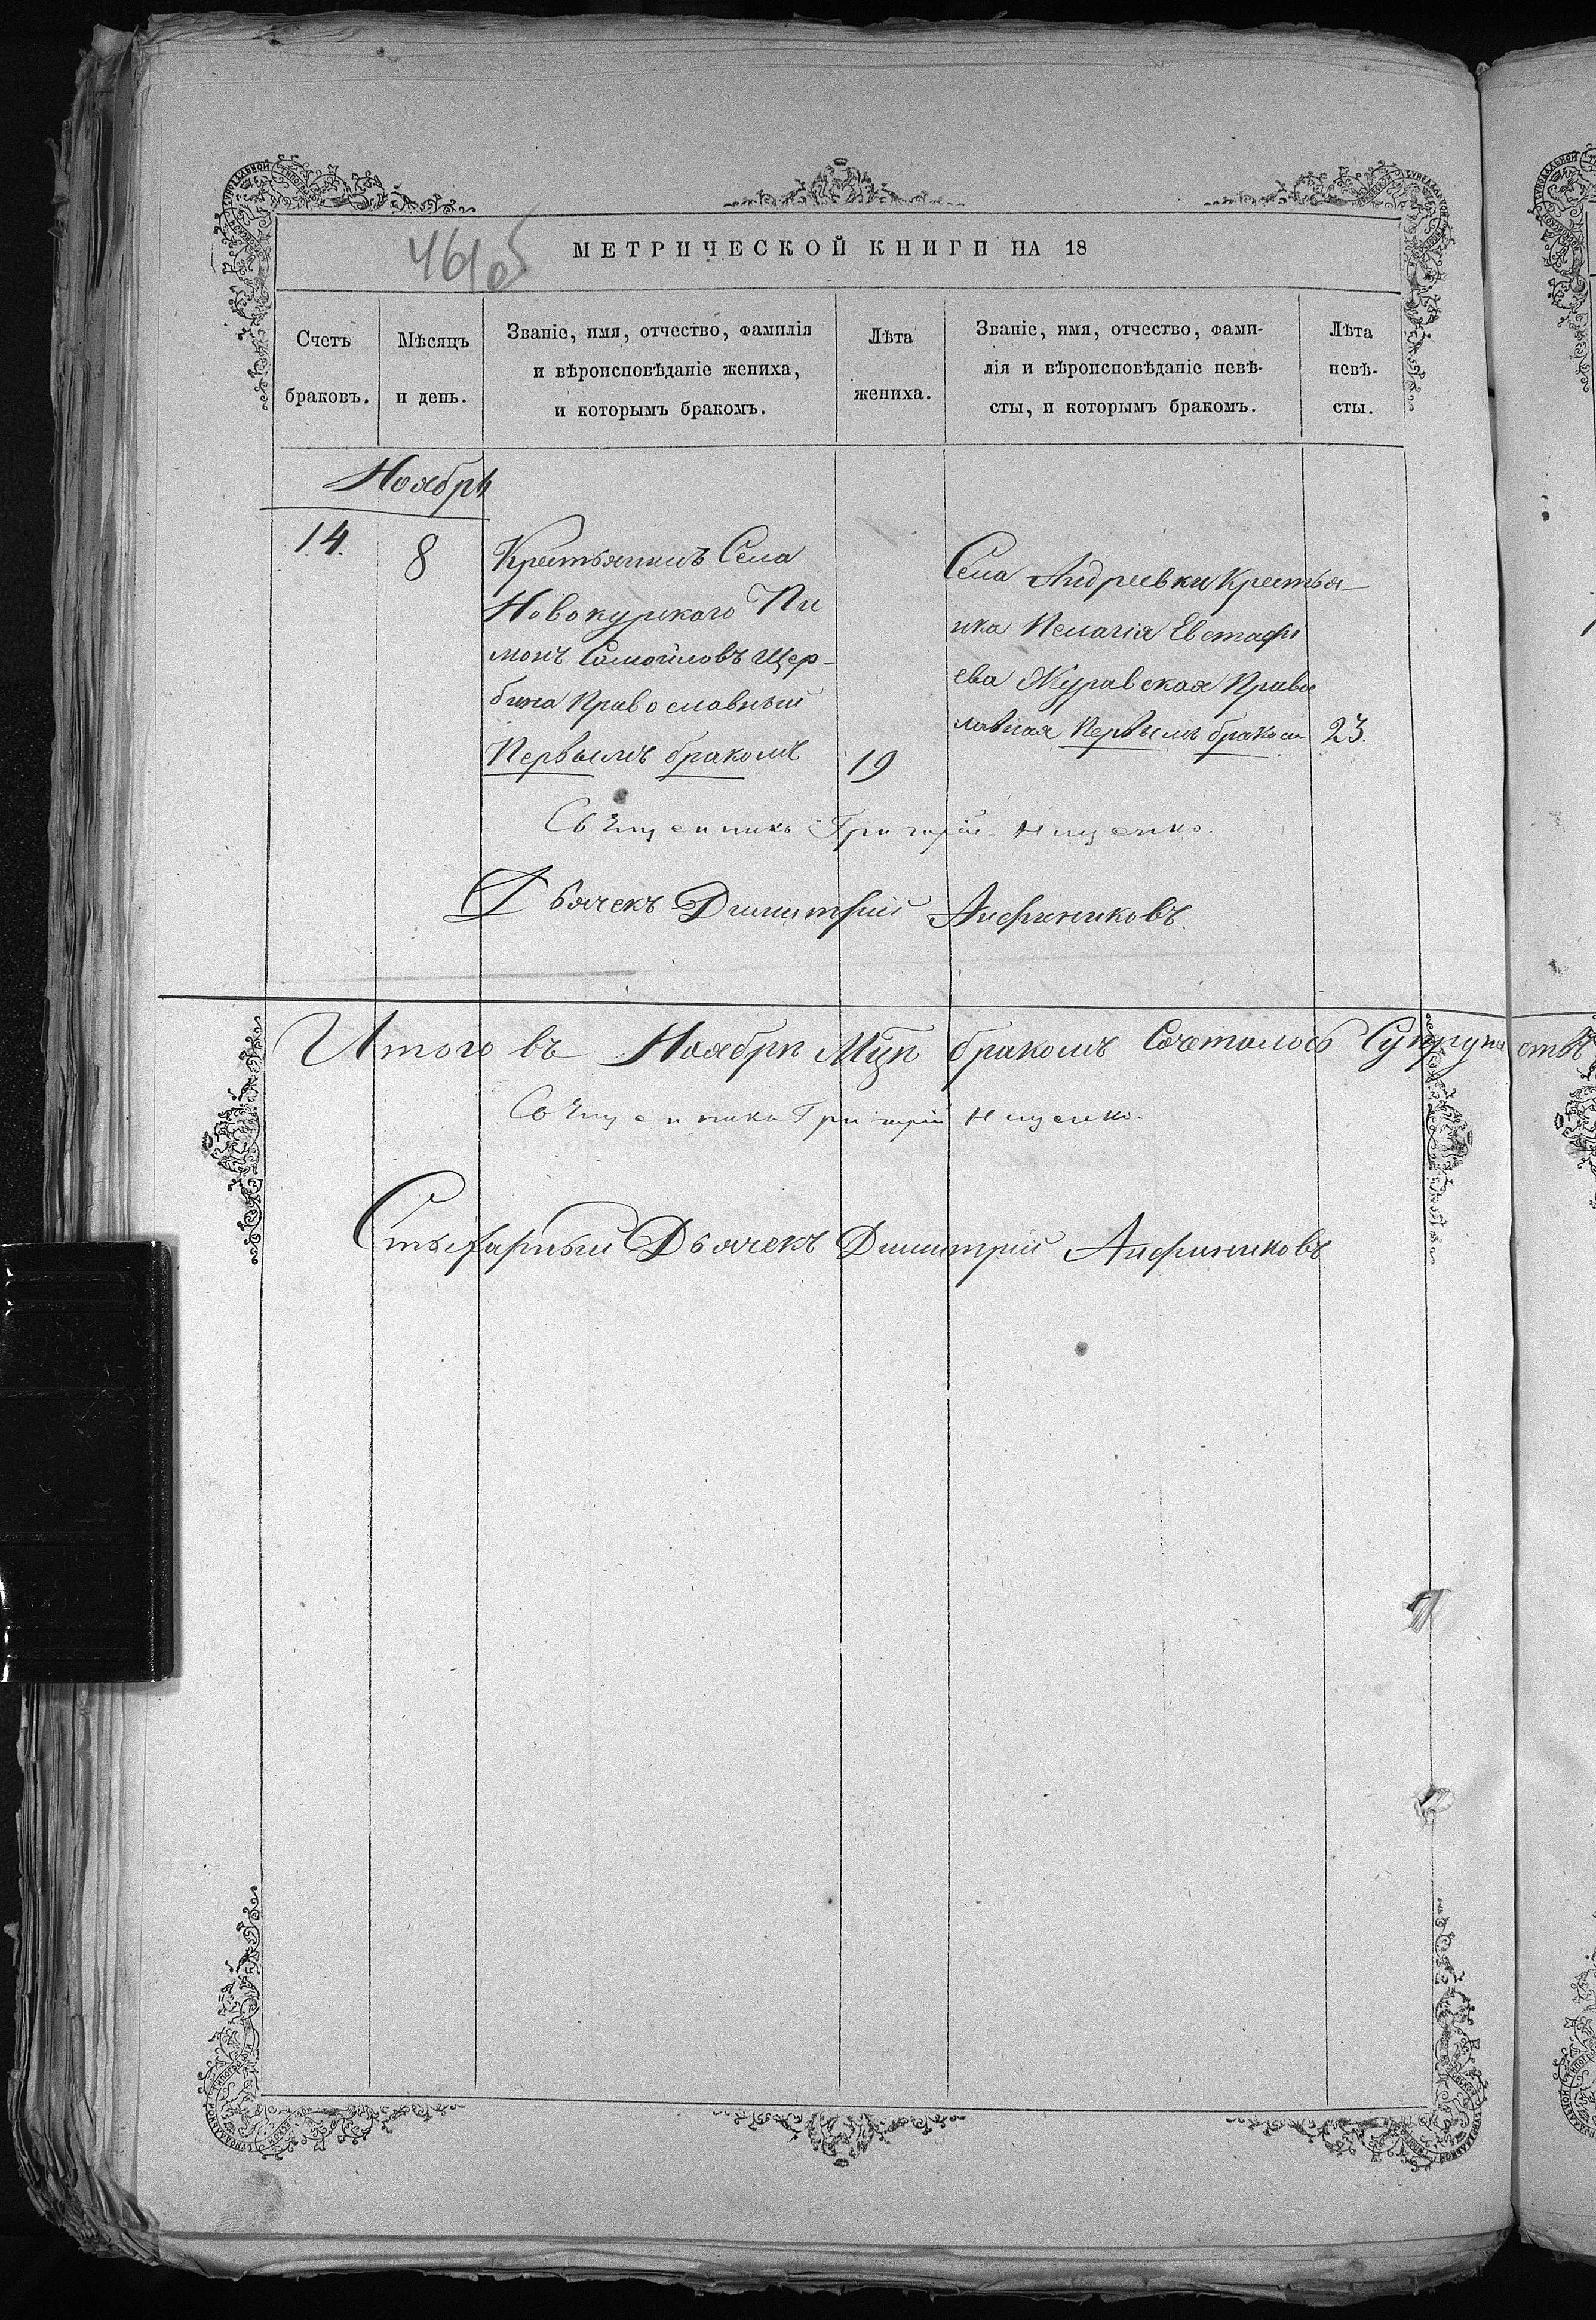 461об
МЕТРИЧЕСКОЙ КНИГИ НА 18
Счетъ браковъ.
Мѣсяцъ и день.
Званіе, имя, отчество, фамилія
и вѣроисповѣданіе жениха,
и которымъ бракомъ.
Лѣта жениха.
Званіе, имя, отчество, фами-
лія и вѣроисповѣданіе невѣ-
сты, и которымъ бракомъ.
Лѣта невѣ-
сты.
Ноябрь
14.
8
Крестьянинъ Села
Новокурского Пи
монъ Самойловъ Щер-
бина Православный
Первымъ бракомъ
19
Села Андреевки Крестья-
нка Пелагія Евстафі
ева Журавская Правос
лавная Первымъ бракомъ
23.
Священникъ Григорій Ищенко.
Дьячекъ Димитрій Анфиногиковъ.
Итого въ Ноябрѣ Мцѣ бракомъ Сочеталось Супружествъ
Священникъ Григорій Ищенко.
Дьячекъ Димитрій